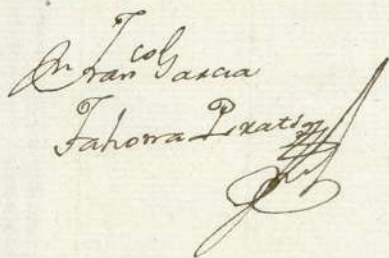 Dn Franco Garcia
Tahona Pratts